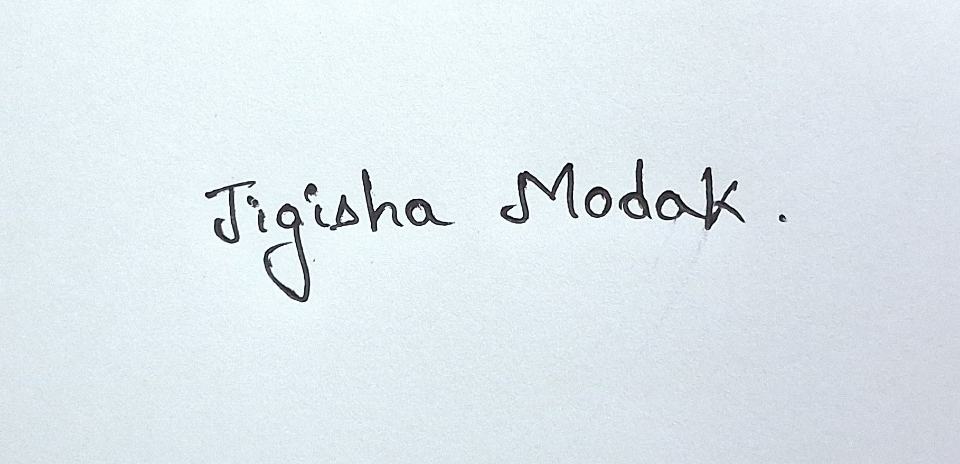 Jigisha Modak.